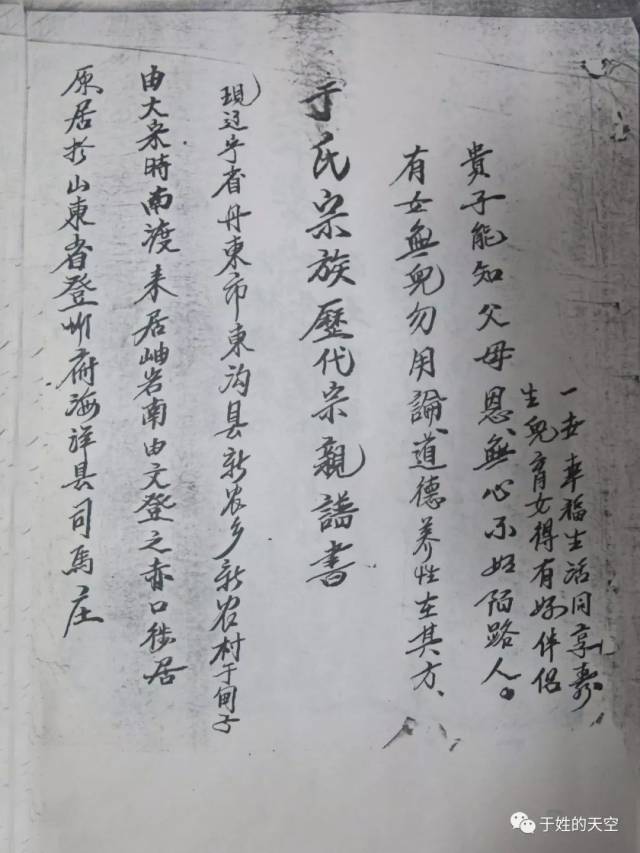 一世幸福生活同享寿
生兒育女得有好伴侣
貴子能知父母恩、無心不如陌路人。
有女無兒勿用論、道德养性在其方、
于氏宗族歷代宗親譜書
現辽宁省丹東市東沟县新农乡新农村于甸子
由大宋時南渡耒居岫岩南由文登之赤口徙居
原居於山東省登州府海洋县司馬庄
于姓的天空